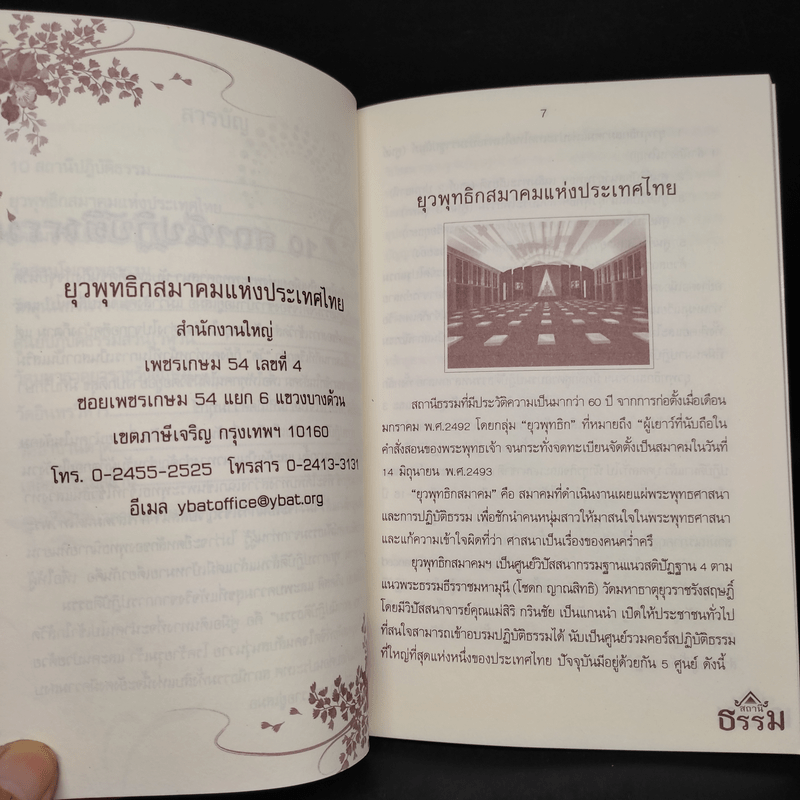 ยุวพุทธิกสมาคมแห่งประเทศไทย
สำนักงานใหญ่
เพชรเกษม 54 เลขที่ 4
ซอยเพชรเกษม 54 แยก 6 แขวงบางด้วน
เขตภาษีเจริญ กรุงเทพฯ 10160
โทร. 0-2455-2525 โทรสาร 0-2413-3131
อีเมล ybatoffice@ybat.org
7
ยุวพุทธิกสมาคมแห่งประเทศไทย
สถานีธรรมที่มีประวัติความเป็นมากว่า 60 ปี จากการก่อตั้งเมื่อเดือน
มกราคม พ.ศ.2492 โดยกลุ่ม “ยุวพุทธิก” ที่หมายถึง “ผู้เยาว์ที่นับถือใน
คำสั่งสอนของพระพุทธเจ้า จนกระทั่งจดทะเบียนจัดตั้งเป็นสมาคมในวันที่
14 มิถุนายน พ.ศ.2493
“ยุวพุทธิกสมาคม” คือ สมาคมที่ดำเนินงานเผยแผ่พระพุทธศาสนา
และการปฏิบัติธรรม เพื่อชักนำคนหนุ่มสาวให้มาสนใจในพระพุทธศาสนา
และแก้ความเข้าใจผิดที่ว่า ศาสนาเป็นเรื่องของคนคร่ำครึ
ยุวพุทธิกสมาคมฯ เป็นศูนย์วิปัสสนากรรมฐานแนวสติปัฏฐาน 4 ตาม
แนวพระธรรมธีรราชมหามุนี (โชดก ญาณสิทธิ) วัดมหาธาตุยุวราชรังสฤษฎิ์
โดยมีวิปัสสนาจารย์คุณแม่สิริ กรินชัย เป็นแกนนำ เปิดให้ประชาชนทั่วไป
ที่สนใจสามารถเข้าอบรมปฏิบัติธรรมได้ นับเป็นศูนย์รวมคอร์สปฏิบัติธรรม
ที่ใหญ่ที่สุดแห่งหนึ่งของประเทศไทย ปัจจุบันมีอยู่ด้วยกัน 5 ศูนย์ ดังนี้
สถานี
ธรรม